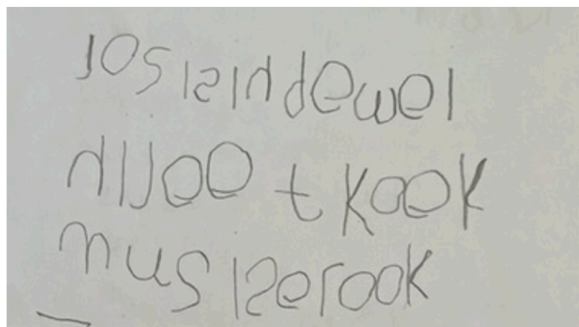 jos is in de wei
hij oo t kook
mus is er ook